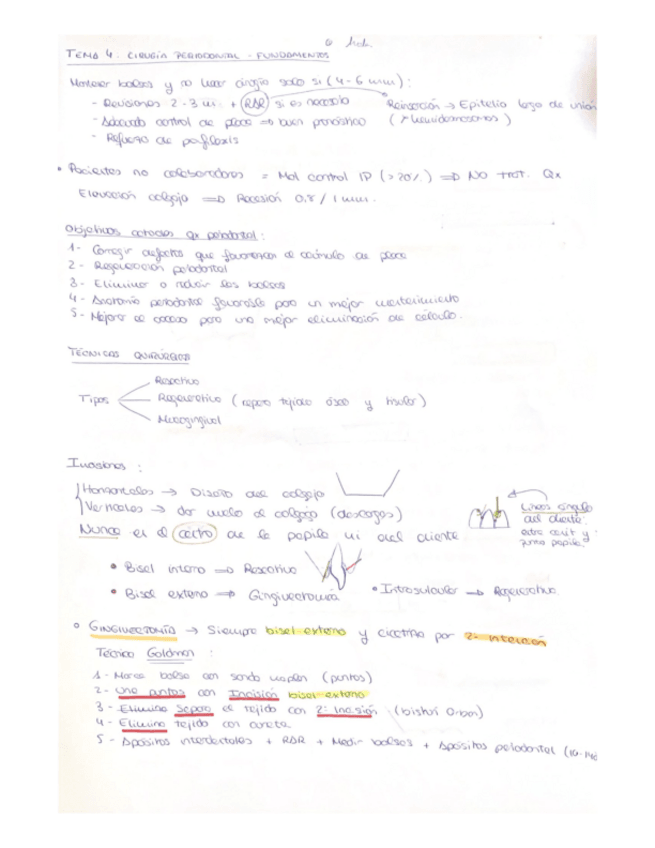 TEMA 4. CIRUGÍA PERIODONTAL - FUNDAMENTOS
Mantener bolsas y no hacer cirugía solo si (4-6 mm):
- Revisiones 2-3 m. + RAR si es necesario
Reinserción → Epitelio largo de unión
- Adecuado control de placa ⇒ buen pronóstico
(> hemidesmosomas)
- Refuerzo de profilaxis
• Pacientes no colaboradores = Mal control IP (>20%) ⇒ NO trat. Qx
Elevación colgajo ⇒ Recesión 0,8 / 1 mm.
Objetivos actuales qx periodontal:
1- Corregir defectos que favorezcan el acúmulo de placa
2- Regeneración periodontal
3- Eliminar o reducir las bolsas
4- Anatomía periodontal favorable para un mejor mantenimiento
5- Mejorar el acceso para una mejor eliminación de cálculo.
TÉCNICAS QUIRÚRGICAS
Resectiva
Tipos
Regenerativa (repara tejido óseo y tisular)
Mucogingival
Incisiones:
Horizontales → Diseño del colgajo
Verticales → dar vuelo al colgajo (descargas)
Líneas ángulo
del diente.
Nunca en el centro de la papila ni del diente
entre cenit y
punta papila.
• Bisel interno ⇒ Resectiva
• Bisel externo ⇒ Gingivectomía
• Intrasulcular → Regenerativa
• GINGIVECTOMÍA → Siempre bisel externo y cicatriza por 2ª intención
Técnica Goldman:
1- Marca bolsa con sonda (puntos)
2- Une puntos con Incisión bisel externo
3- Elimina Separa el tejido con 2ª Incisión (bisturí Orban)
4- Elimina tejido con cureta
5- Apósitos interdentales + RAR + Medir bolsas + Apósitos periodontal (10-14d